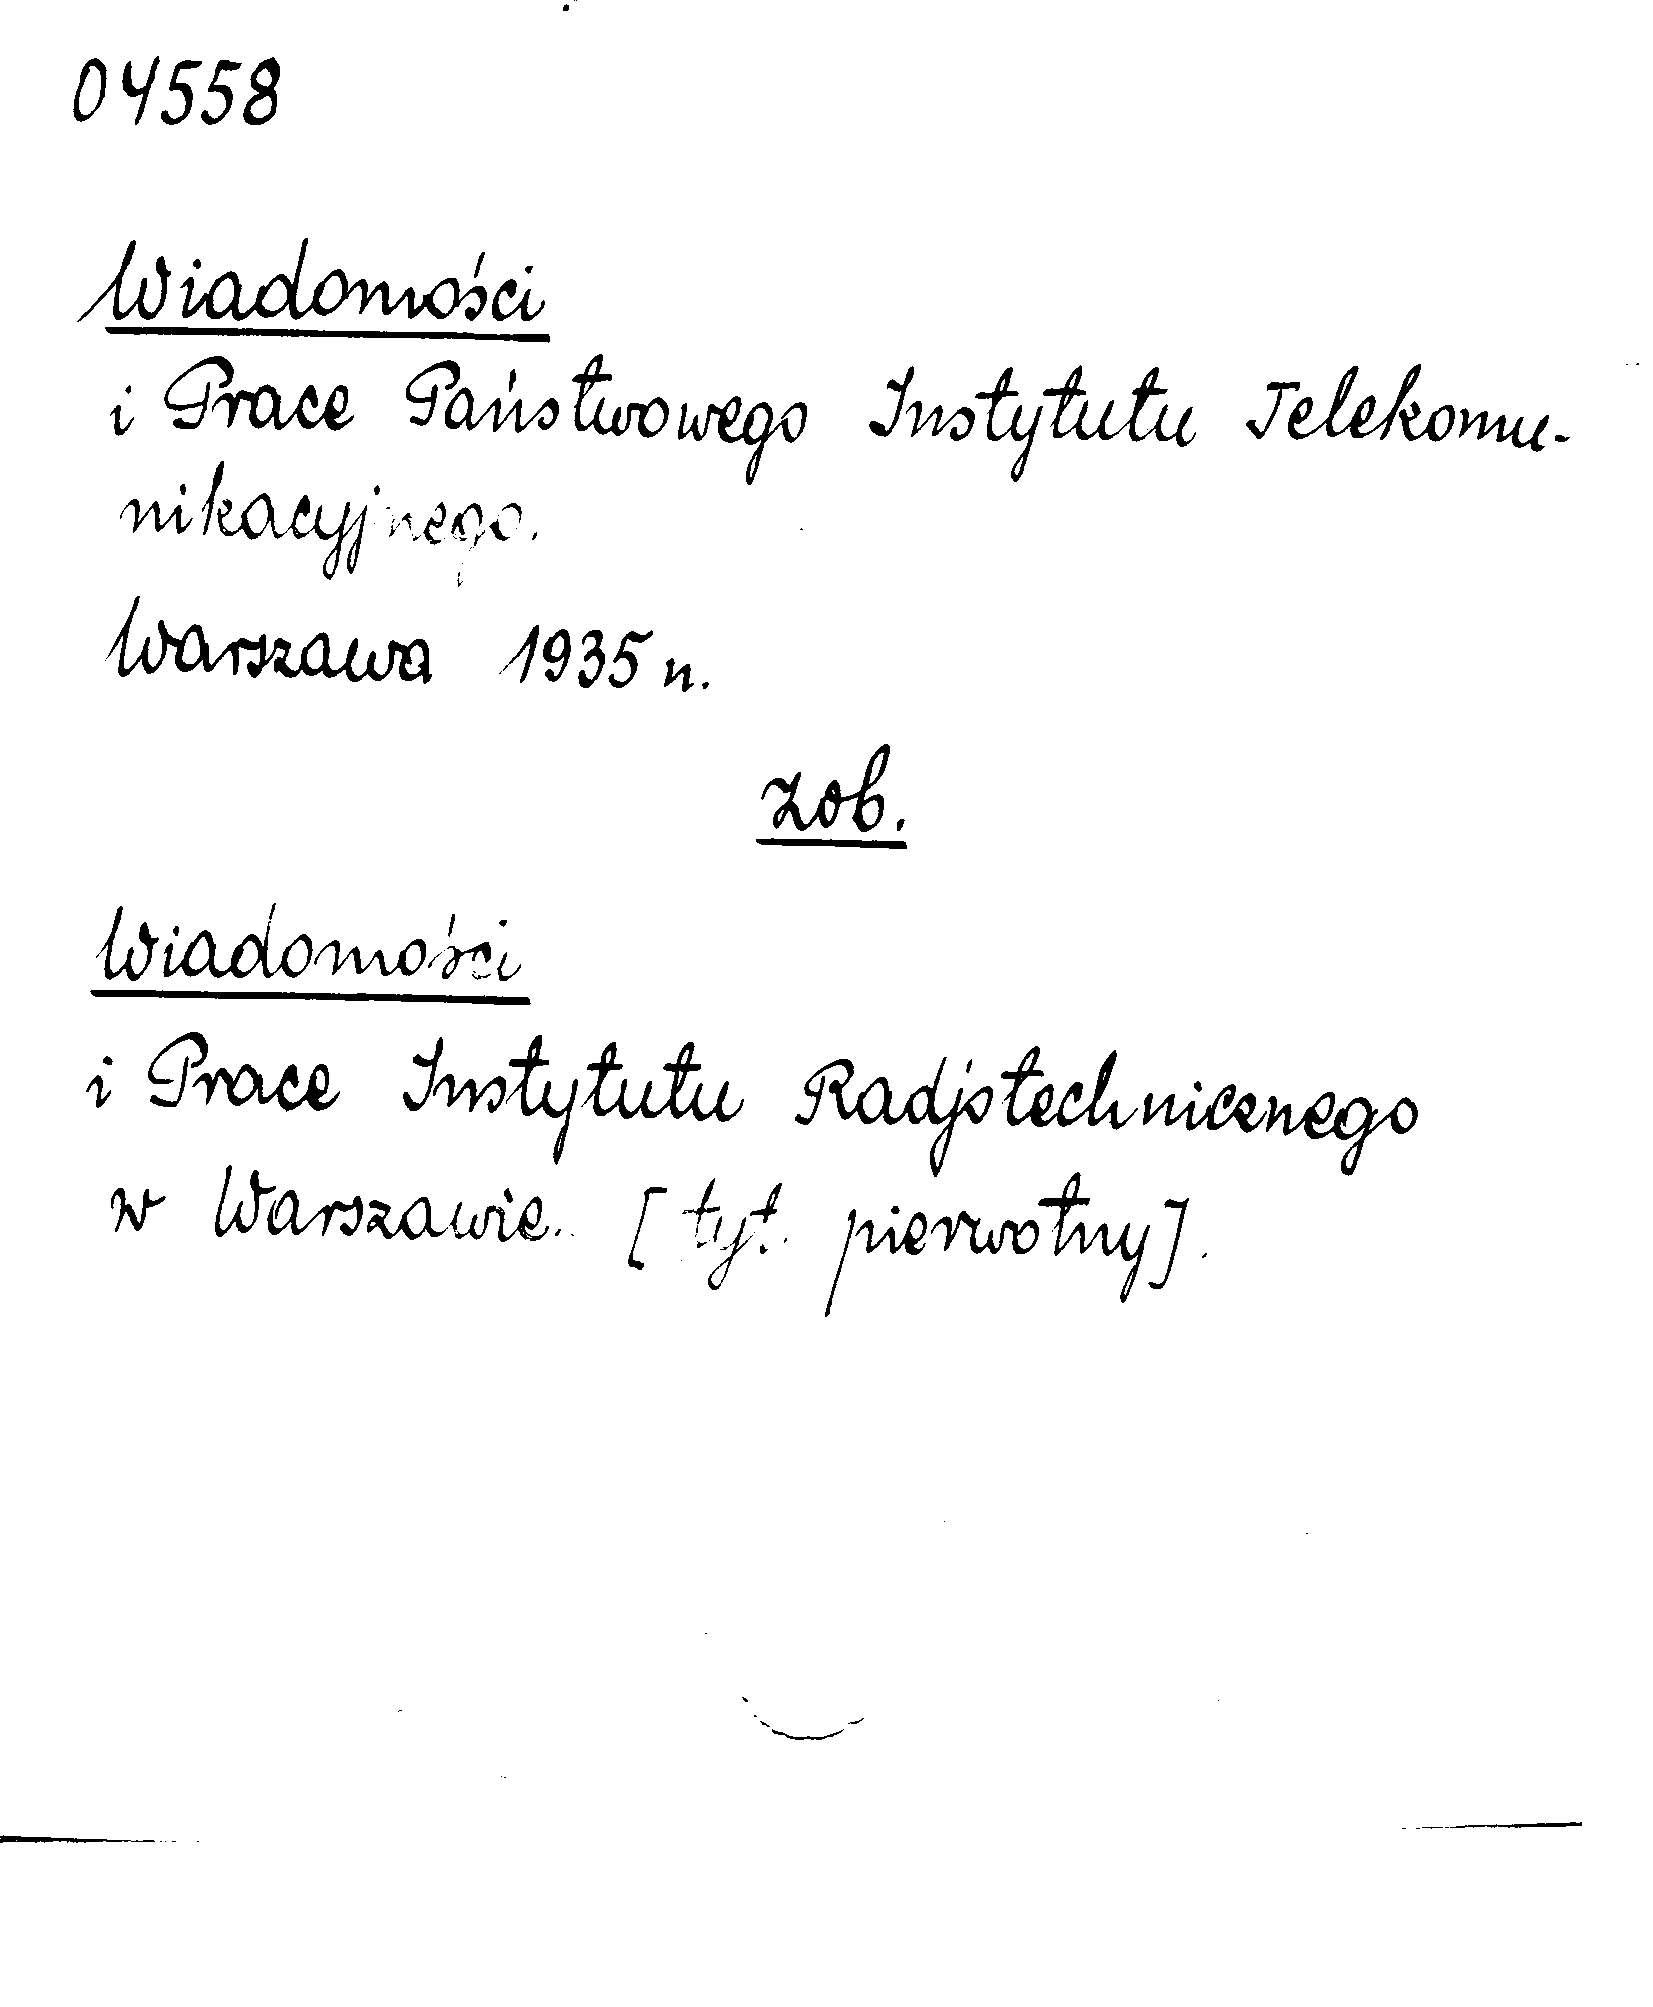 04558
Wiadomości
i Prace Państwowego Instytutu Telekomu-
nikacyjnego.
Warszawa 1935 n.
zob.
Wiadomości
i Prace Instytutu Radjotechnicznego
w Warszawie. [tyt. pierwotny].